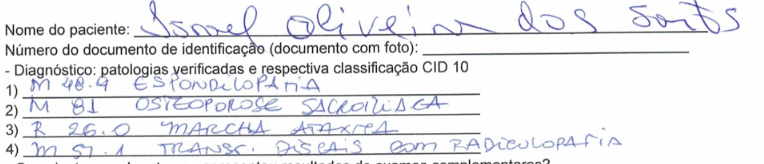 Nome do paciente: Ismael Oliveira dos Santos
Número do documento de identificação (documento com foto):
- Diagnóstico: patologias verificadas e respectiva classificação CID 10
1) M 48.9 ESPONDILOPATIA
2) M 81 OSTEOPOROSE SACROILIACA
3) R 26.0 MARCHA ATAXICA
4) M 51.1 TRANSC. DISCAIS COM RADICULOPATIA